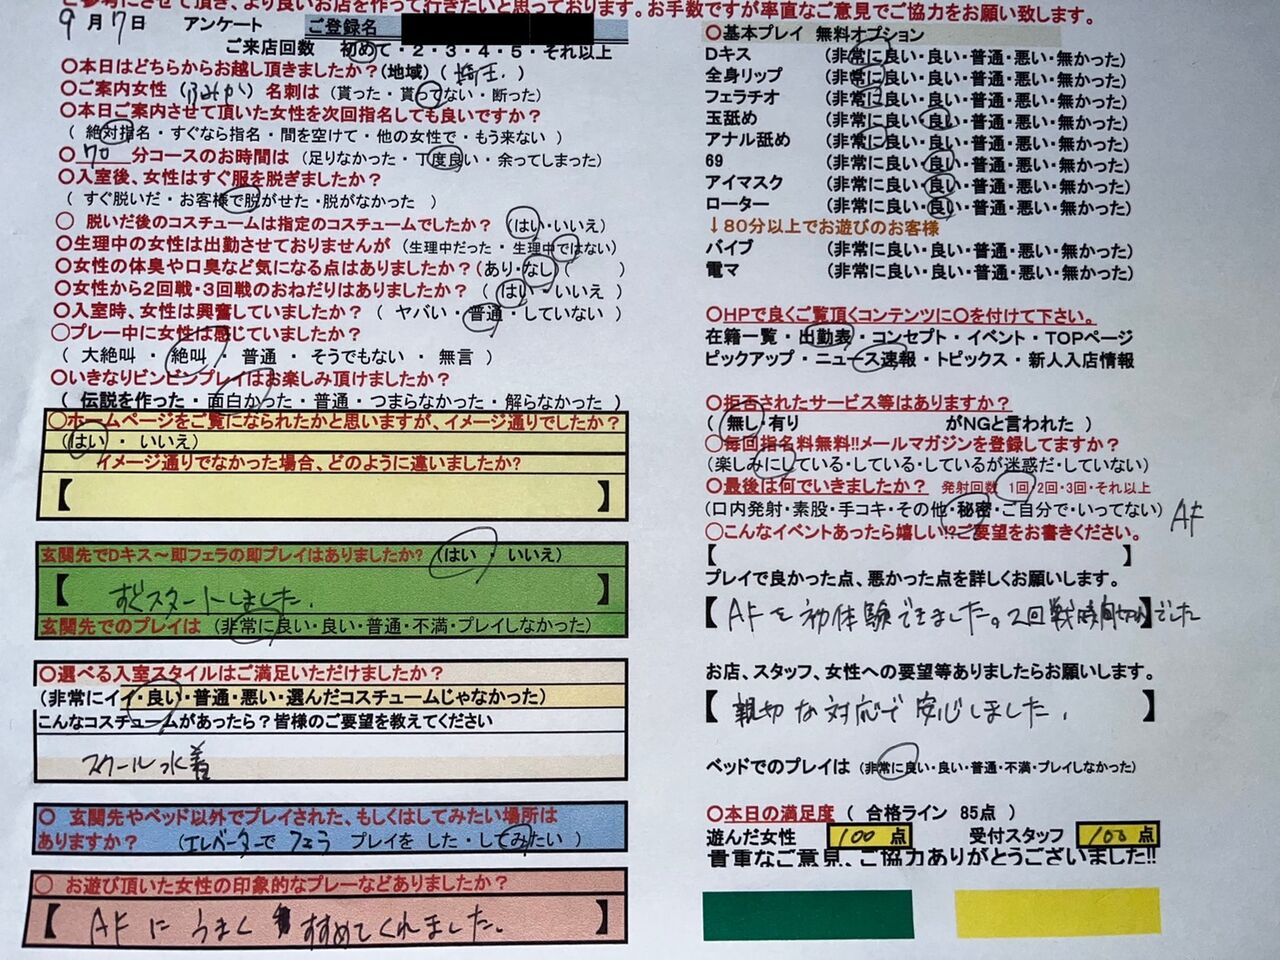 ご参考にさせて頂き、より良いお店を作って行きたいと思っております。お手数ですが率直なご意見でご協力をお願い致します。
9月7日 アンケート ご登録名
ご来店回数 初めて・2・3・4・5・それ以上
〇本日はどちらからお越し頂きましたか?(地域) ( 埼玉. )
〇ご案内女性 (ふみか) 名刺は (貰った・貰ってない・断った)
〇本日ご案内させて頂いた女性を次回指名しても良いですか?
( 絶対指名・すぐなら指名・間を空けて・他の女性で・もう来ない )
〇 70 分コースのお時間は (足りなかった・丁度良い・余ってしまった)
〇入室後、女性はすぐ服を脱ぎましたか?
( すぐ脱いだ・お客様で脱がせた・脱がなかった )
〇 脱いだ後のコスチュームは指定のコスチュームでしたか? (はい・いいえ)
〇生理中の女性は出勤させておりませんが (生理中だった・生理中ではない)
〇女性の体臭や口臭など気になる点はありましたか?(あり・なし ( )
〇女性から2回戦・3回戦のおねだりはありましたか? ( はい・いいえ )
〇入室時、女性は興奮していましたか? ( ヤバい・普通・していない )
〇プレー中に女性は感じていましたか?
( 大絶叫 ・ 絶叫 ・ 普通 ・ そうでもない ・ 無言 )
〇いきなりビンビンプレイはお楽しみ頂けましたか?
( 伝説を作った・面白かった・普通・つまらなかった・解らなかった )
〇ホームページをご覧になられたかと思いますが、イメージ通りでしたか?
(はい ・ いいえ)
イメージ通りでなかった場合、どのように違いましたか?
【 】
玄関先でDキス～即フェラの即プレイはありましたか? (はい ・ いいえ)
【 すぐスタートしました. 】
玄関先でのプレイは (非常に良い・良い・普通・不満・プレイしなかった)
〇選べる入室スタイルはご満足いただけましたか?
(非常にイイ・良い・普通・悪い・選んだコスチュームじゃなかった)
こんなコスチュームがあったら?皆様のご要望を教えてください
スクール水着
〇 玄関先やベッド以外でプレイされた、もしくはしてみたい場所は
ありますか? (エレベーターで フェラ プレイを した・してみたい )
〇 お遊び頂いた女性の印象的なプレーなどありましたか?
【 AFに うまく すすめてくれました. 】
〇基本プレイ 無料オプション
Dキス (非常に良い・良い・普通・悪い・無かった)
全身リップ (非常に良い・良い・普通・悪い・無かった)
フェラチオ (非常に良い・良い・普通・悪い・無かった)
玉舐め (非常に良い・良い・普通・悪い・無かった)
アナル舐め (非常に良い・良い・普通・悪い・無かった)
69 (非常に良い・良い・普通・悪い・無かった)
アイマスク (非常に良い・良い・普通・悪い・無かった)
ローター (非常に良い・良い・普通・悪い・無かった)
↓80分以上でお遊びのお客様
バイブ (非常に良い・良い・普通・悪い・無かった)
電マ (非常に良い・良い・普通・悪い・無かった)
〇HPで良くご覧頂くコンテンツに〇を付けて下さい。
在籍一覧・出勤表・コンセプト・イベント・TOPページ
ピックアップ・ニュース速報・トピックス・新人入店情報
〇拒否されたサービス等はありますか?
( 無し・有り がNGと言われた )
〇毎回指名料無料!!メールマガジンを登録してますか?
(楽しみにしている・している・しているが迷惑だ・していない)
〇最後は何でいきましたか? 発射回数 1回・2回・3回・それ以上
(口内発射・素股・手コキ・その他・秘密・ご自分で・いってない) AF
〇こんなイベントあったら嬉しい!?ご要望をお書きください。
【 】
プレイで良かった点、悪かった点を詳しくお願いします。
【 AFを初体験できました。2回戦時間切れ】でした
お店、スタッフ、女性への要望等ありましたらお願いします。
【 親切な対応で安心しました. 】
ベッドでのプレイは (非常に良い・良い・普通・不満・プレイしなかった)
〇本日の満足度 ( 合格ライン 85点 )
遊んだ女性 100 点 受付スタッフ 100 点
貴重なご意見、ご協力ありがとうございました!!